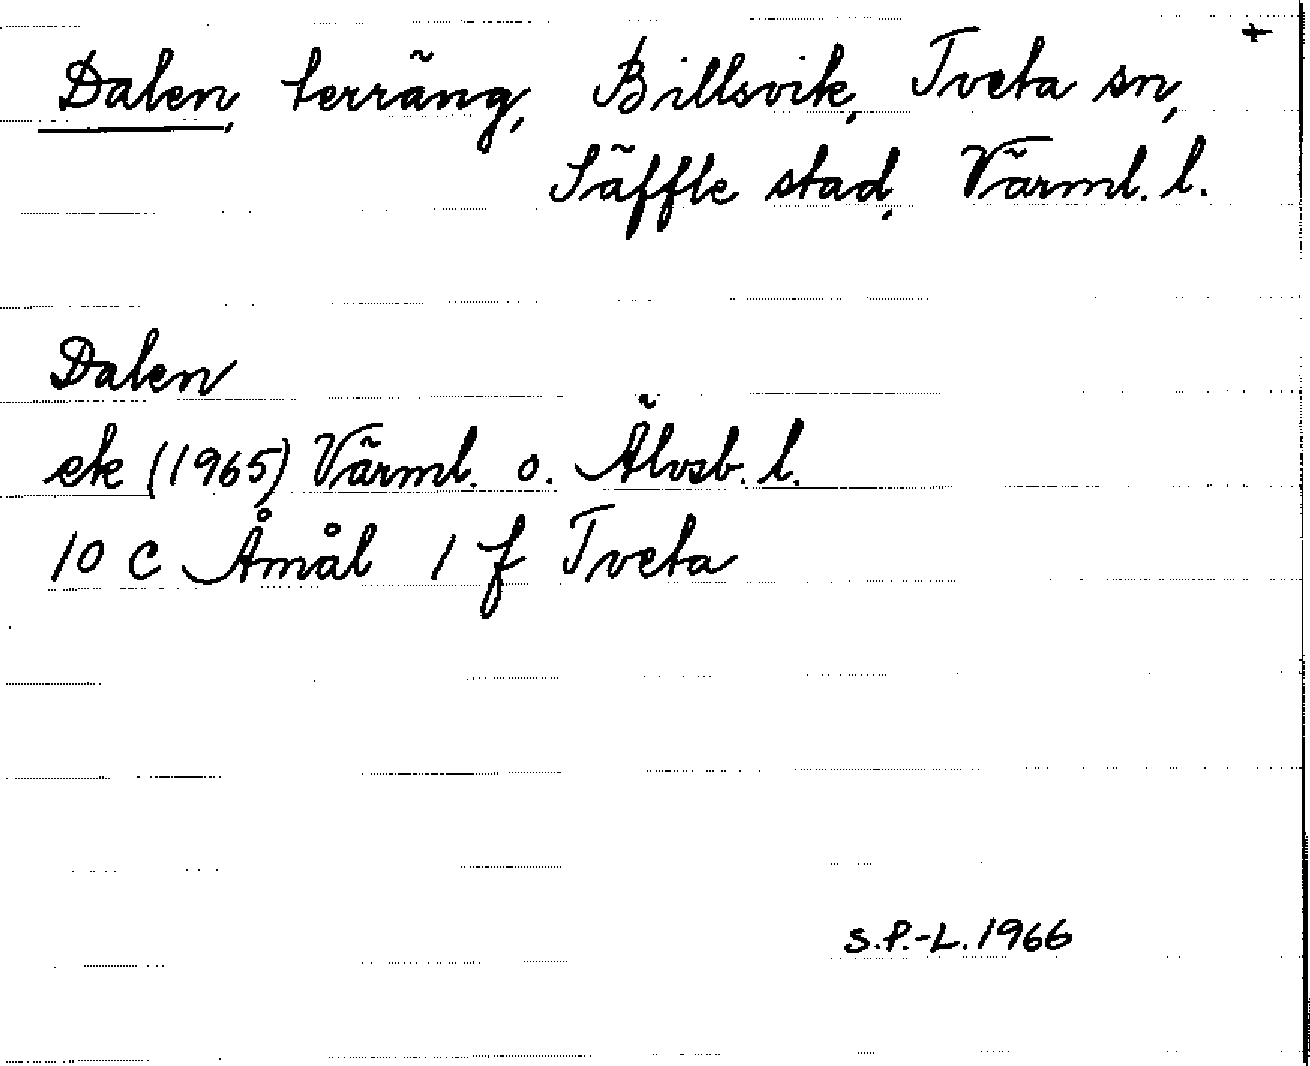 +
Dalen, terräng, Billsvik, Tveta sn,
Säffle stad, Värml. l.
Dalen
ek (1965) Värml. o. Älvsb. l.
10 C Åmål 1 f Tveta
S.P.-L. 1966